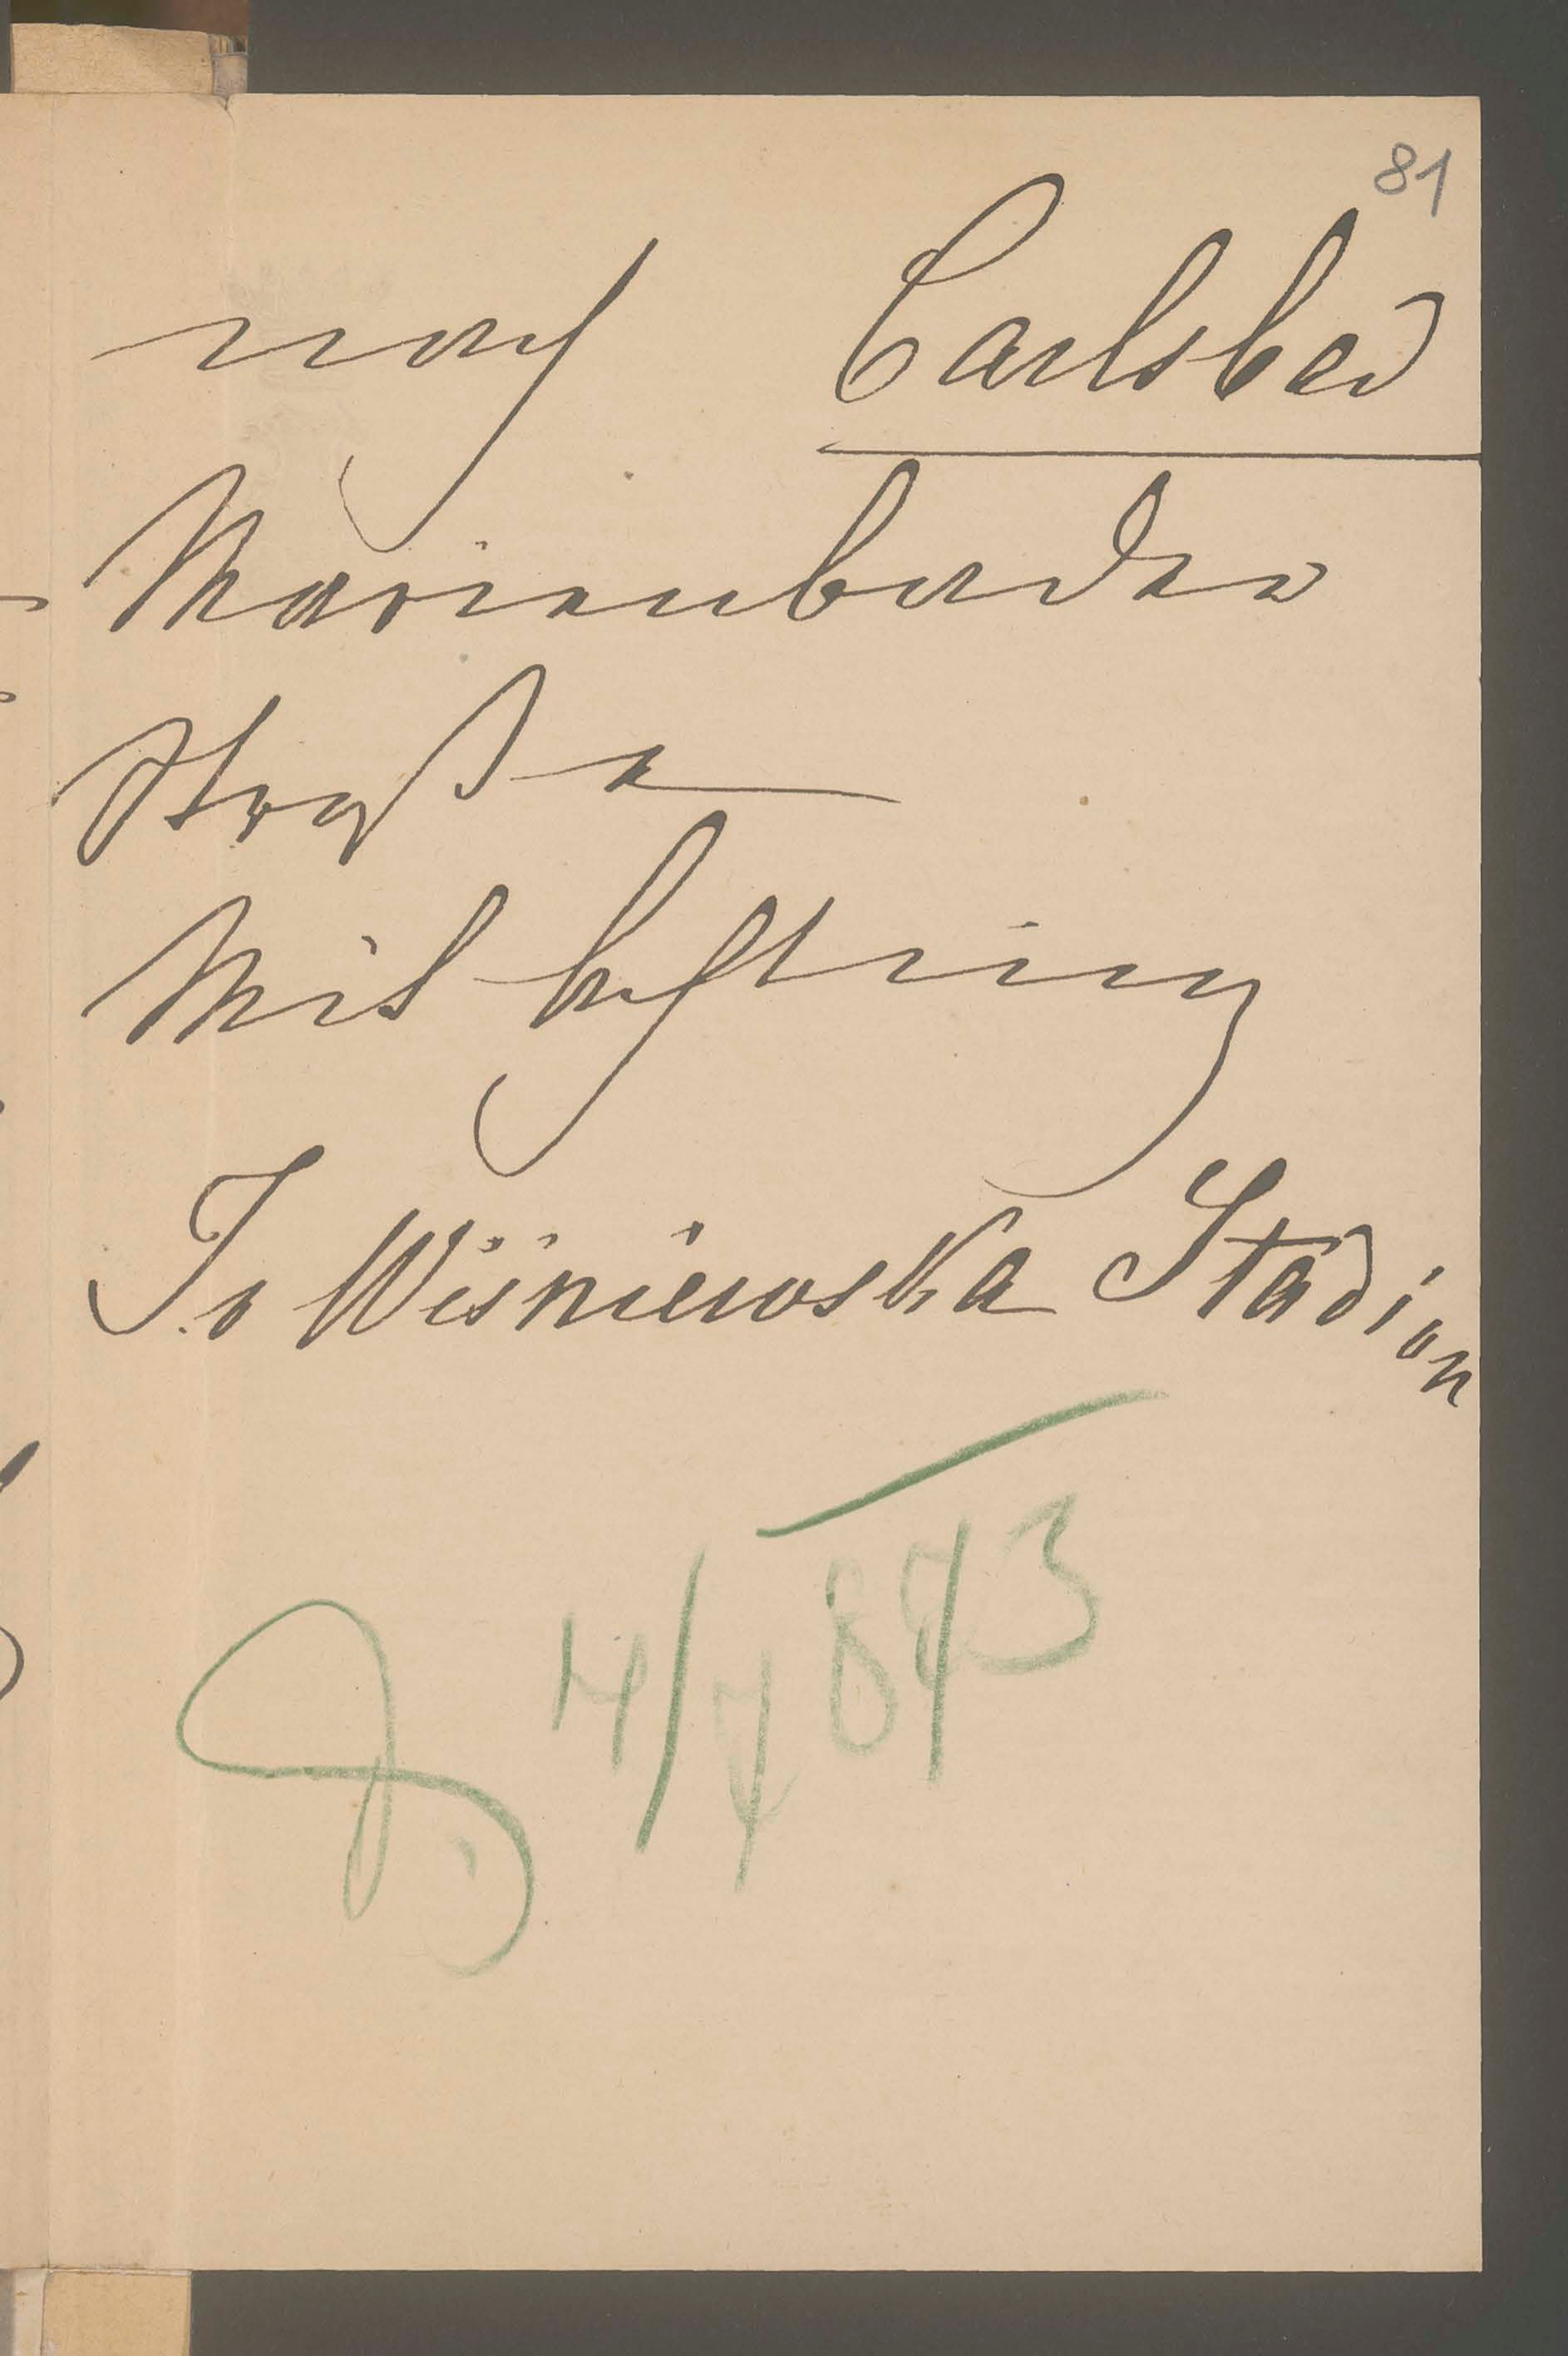 81
nach Carlsbad
Marienbader
Straße
Mit Achtung
Wiśniewska Stadion
4/7 893